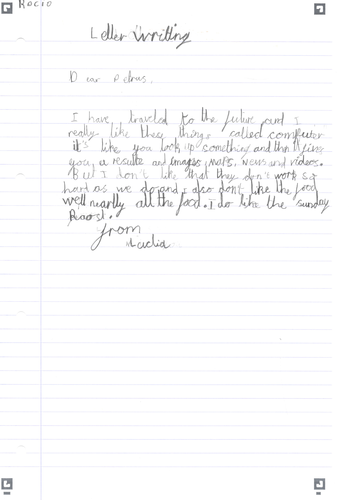 ROCIO
Letter writing
Dear Petrus,
I have traveled to the future and I
really like they things called computer
it's like you look up something and thn it gives
you a results and images, maps, news and videos.
But I don't like that they don't work so
hard as we do and I also dont like the food
well nearly all the food. I do like the sunday
Roost.
from